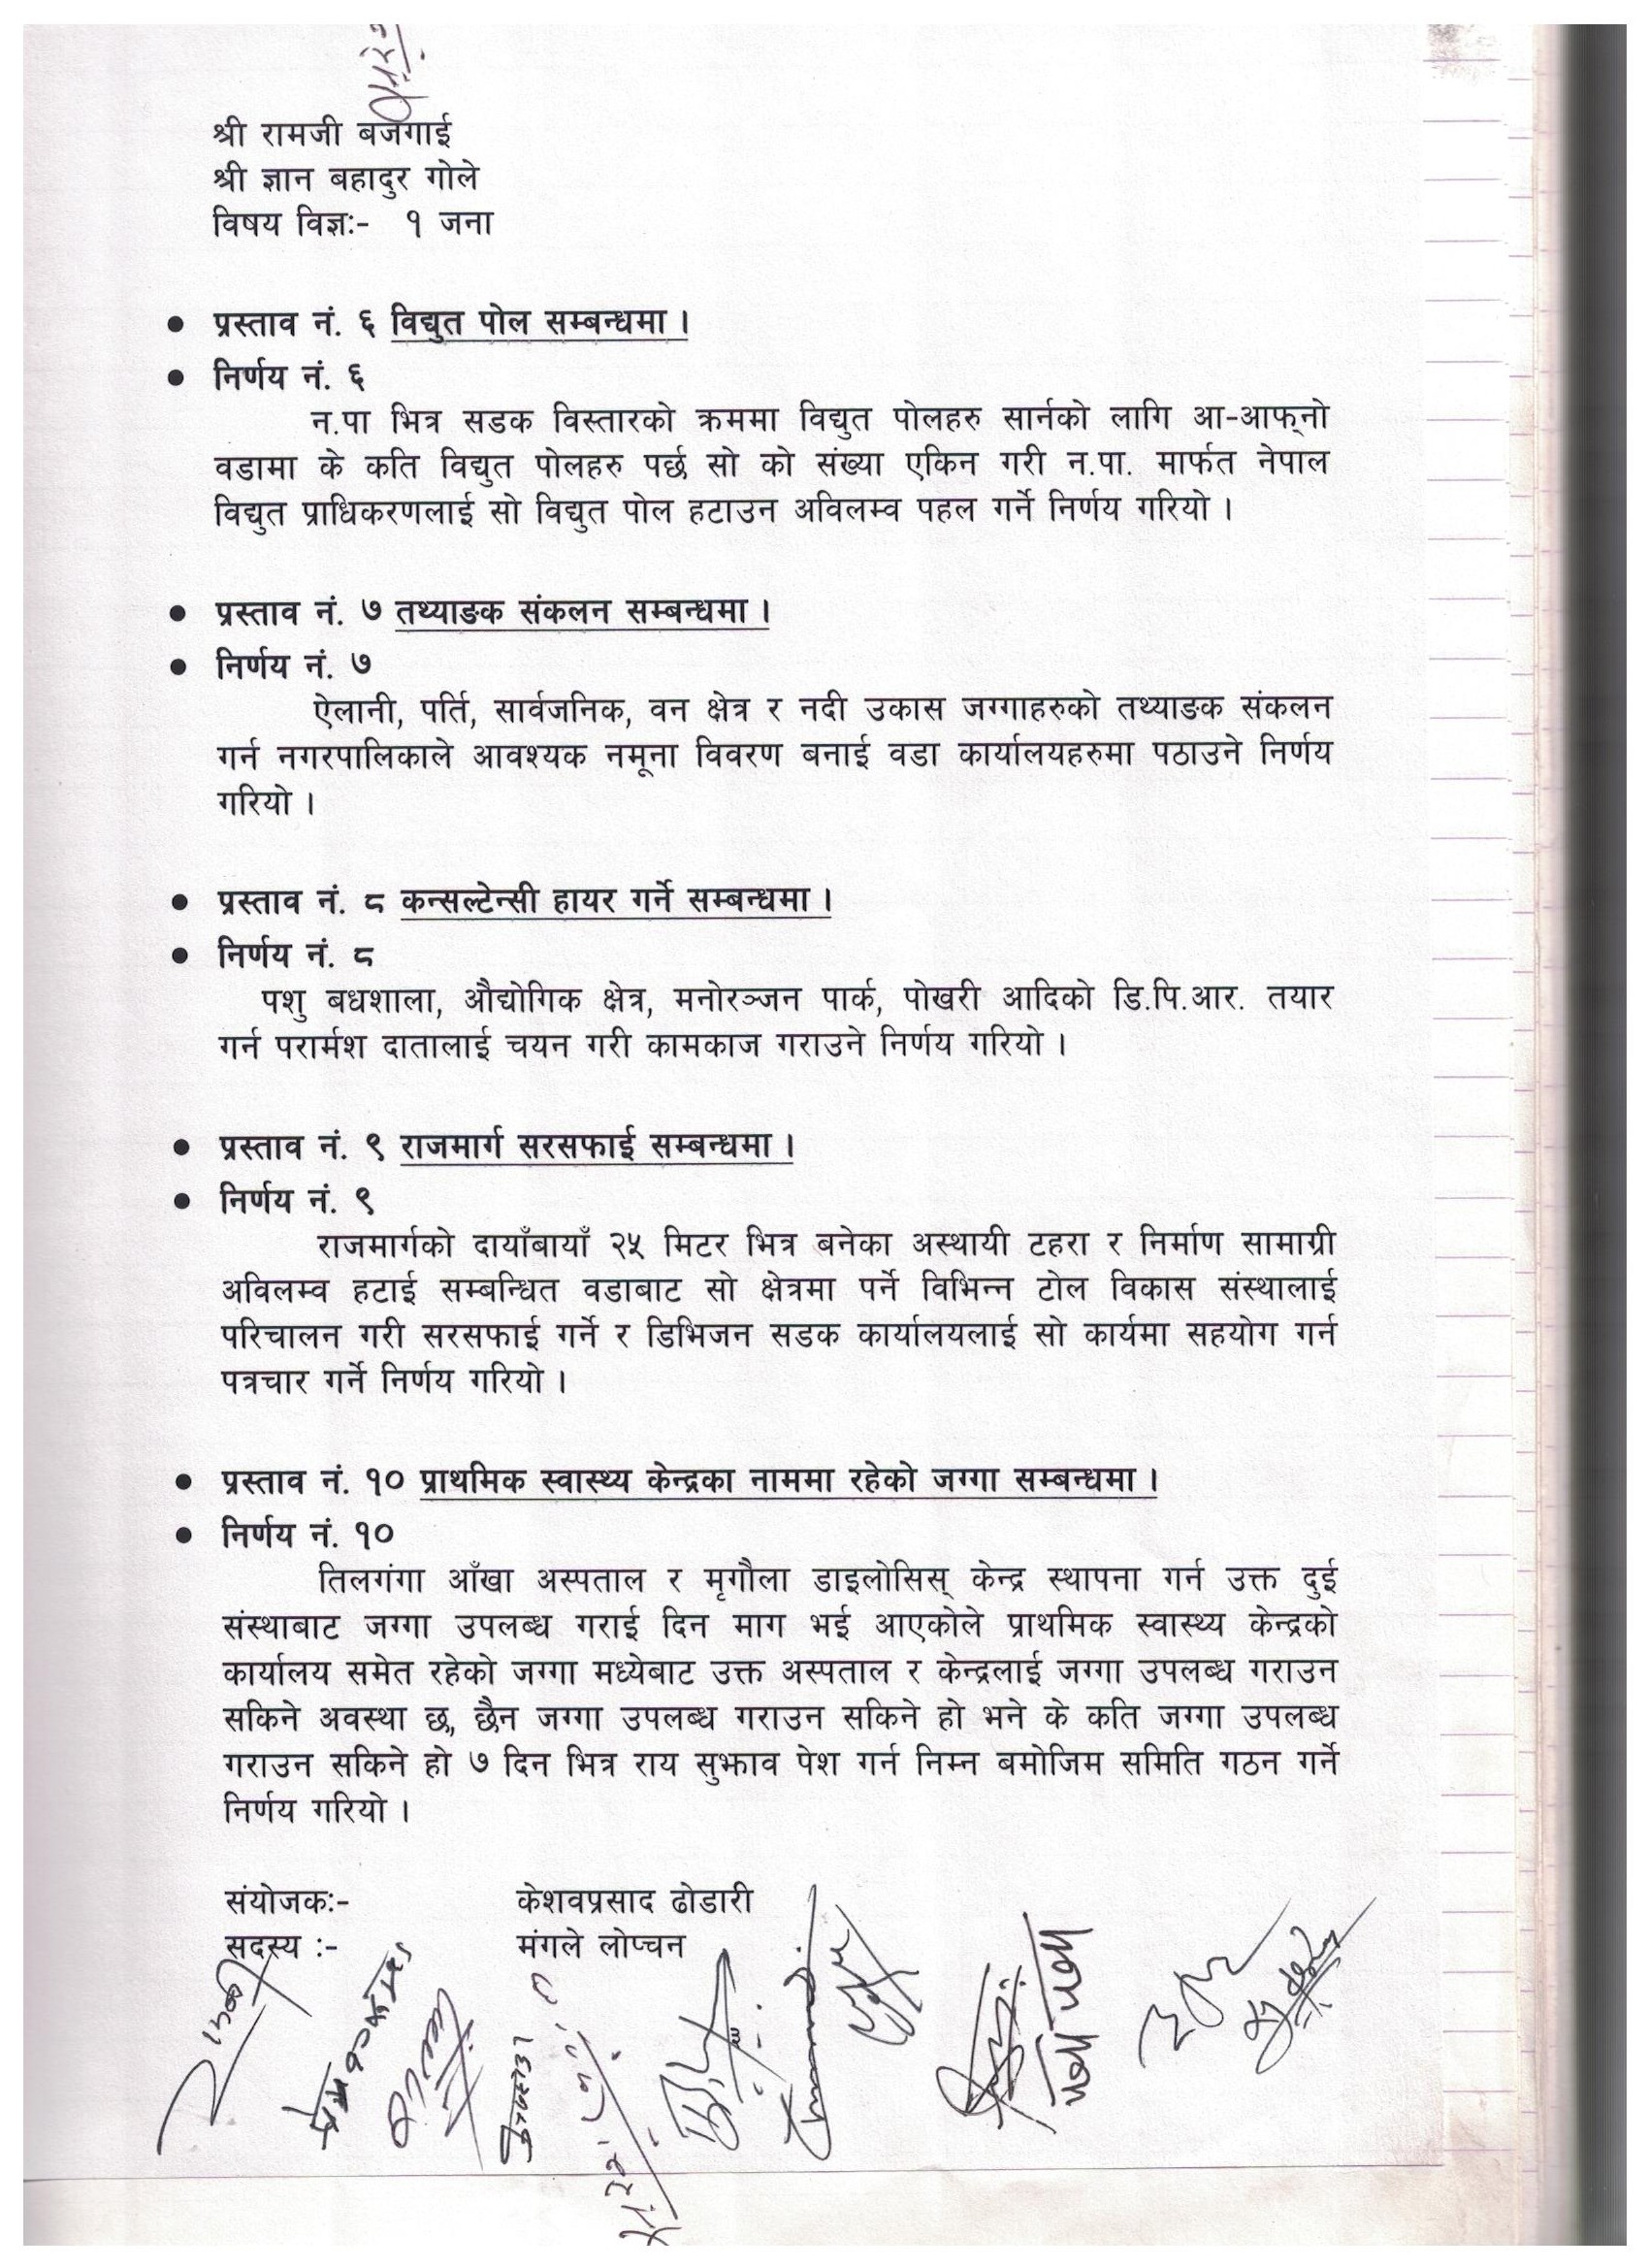 श्री रामजी बजगाई
श्री ज्ञान बहादुर गोले
विषय विज्ञः- १ जना
• प्रस्ताव नं. ६ विद्युत पोल सम्बन्धमा ।
• निर्णय नं. ६
न.पा भित्र सडक विस्तारको क्रममा विद्युत पोलहरु सार्नको लागि आ-आफ्‌नो
वडामा के कति विद्युत पोलहरु पर्छ सो को संख्या एकिन गरी न.पा. मार्फत नेपाल
विद्युत प्राधिकरणलाई सो विद्युत पोल हटाउन अविलम्व पहल गर्ने निर्णय गरियो ।
• प्रस्ताव नं. ७ तथ्याङक संकलन सम्बन्धमा ।
• निर्णय नं. ७
ऐलानी, पर्ति, सार्वजनिक, वन क्षेत्र र नदी उकास जग्गाहरुको तथ्याङक संकलन
गर्न नगरपालिकाले आवश्यक नमूना विवरण बनाई वडा कार्यालयहरुमा पठाउने निर्णय
गरियो ।
• प्रस्ताव नं. ८ कन्सल्टेन्सी हायर गर्ने सम्बन्धमा ।
• निर्णय नं. ८
पशु बधशाला, औद्योगिक क्षेत्र, मनोरञ्जन पार्क, पोखरी आदिको डि.पि.आर. तयार
गर्न परार्मश दातालाई चयन गरी कामकाज गराउने निर्णय गरियो ।
• प्रस्ताव नं. ९ राजमार्ग सरसफाई सम्बन्धमा ।
• निर्णय नं. ९
राजमार्गको दायाँबायाँ २५ मिटर भित्र बनेका अस्थायी टहरा र निर्माण सामाग्री
अविलम्व हटाई सम्बन्धित वडाबाट सो क्षेत्रमा पर्ने विभिन्न टोल विकास संस्थालाई
परिचालन गरी सरसफाई गर्ने र डिभिजन सडक कार्यालयलाई सो कार्यमा सहयोग गर्न
पत्रचार गर्ने निर्णय गरियो ।
• प्रस्ताव नं. १० प्राथमिक स्वास्थ्य केन्द्रका नाममा रहेको जग्गा सम्बन्धमा ।
• निर्णय नं. १०
तिलगंगा आँखा अस्पताल र मृगौला डाइलोसिस् केन्द्र स्थापना गर्न उक्त दुई
संस्थाबाट जग्गा उपलब्ध गराई दिन माग भई आएकोले प्राथमिक स्वास्थ्य केन्द्रको
कार्यालय समेत रहेको जग्गा मध्येबाट उक्त अस्पताल र केन्द्रलाई जग्गा उपलब्ध गराउन
सकिने अवस्था छ, छैन जग्गा उपलब्ध गराउन सकिने हो भने के कति जग्गा उपलब्ध
गराउन सकिने हो ७ दिन भित्र राय सुझाव पेश गर्न निम्न बमोजिम समिति गठन गर्ने
निर्णय गरियो ।
संयोजकः- केशवप्रसाद ढोडारी
सदस्य :- मंगले लोप्चन